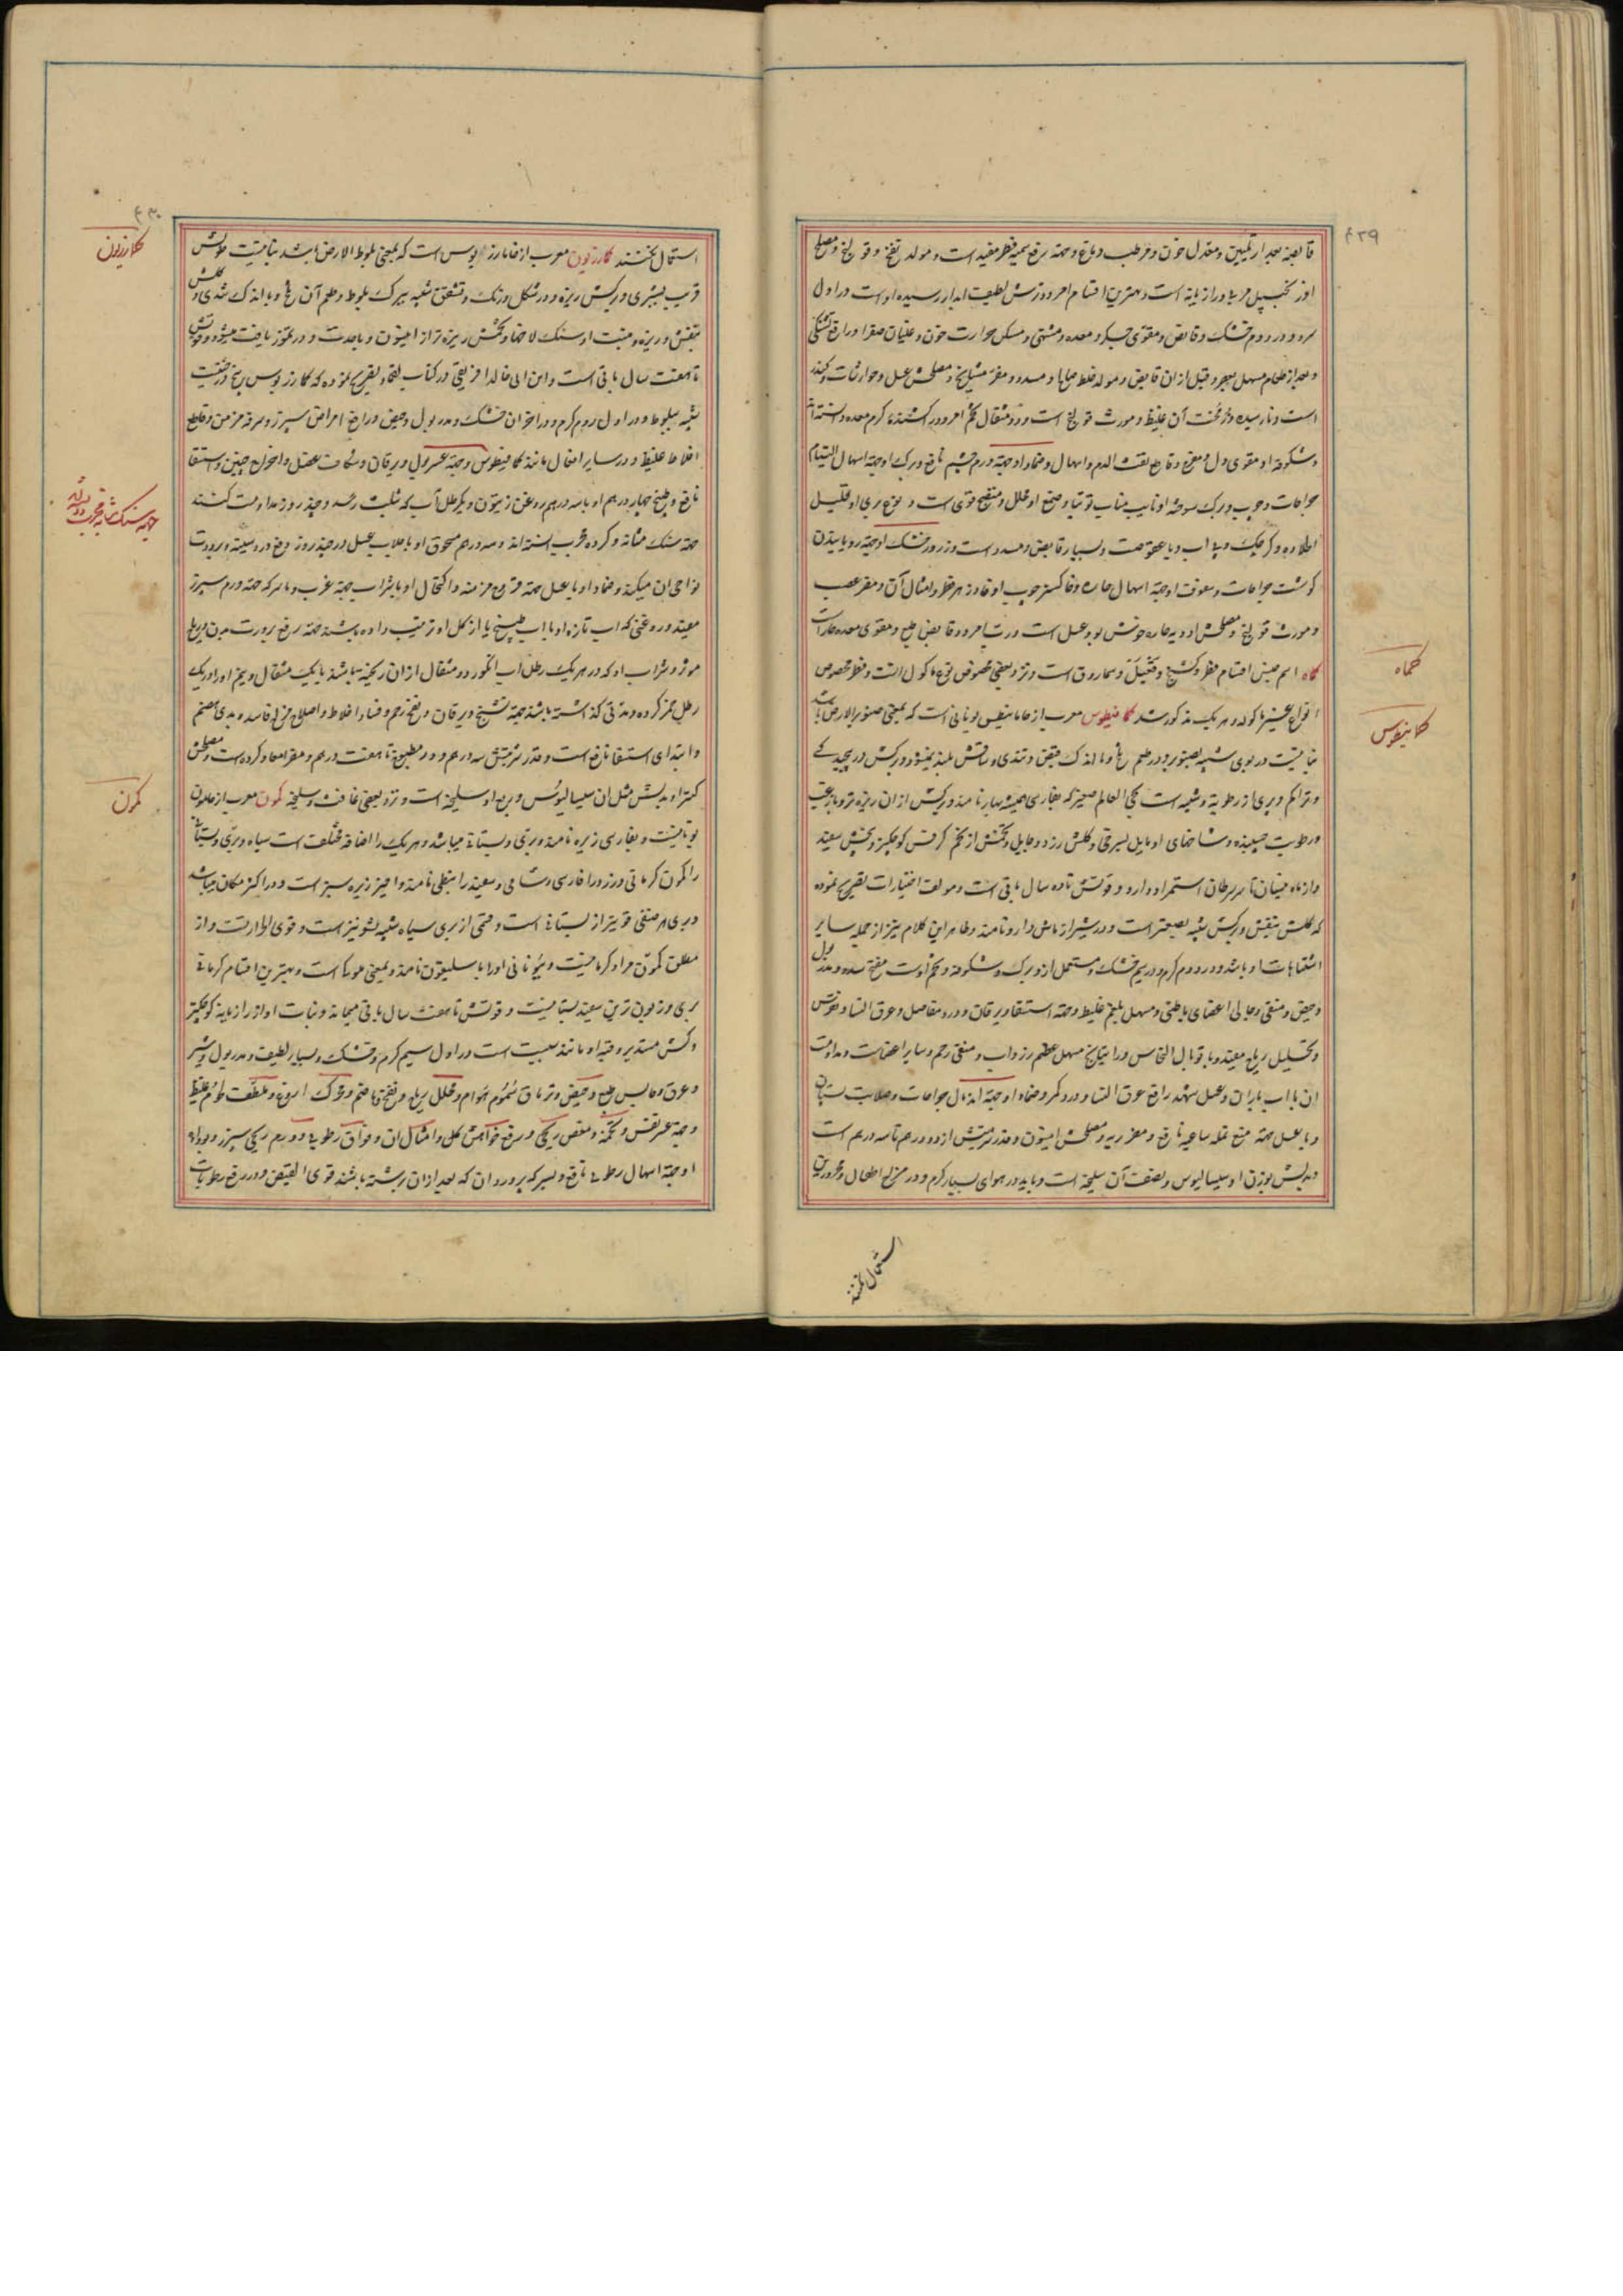 ۴۲۹
قابضه بعد از تلیین و معدل خون و مرطب دماغ و جهة رفع سمیه فطر مفید است و مولد نفخ و قولنج و مصلح
او زنجبیل مربا و رازیانه است و بهترین اقسام امرود ترش لطیف آبدار رسیده اوست در اول
سرد و در دوم خشک و قابض و مقوی جگر و معده و مشتهی و مسکن حرارت خون و غلیان صفرا و رافع تشنگی
و بعد از طعام مسهل بعصر و قبل از ان قابض و مولد خلط صالح و مسدد و مضر مشایخ و مصلحش عسل و جوارشات و کندر
است و نارسیده و زمخت آن غلیظ و مورث قولنج است و دو مثقال تخم امرود کشنده کرم معده دانسته‌اند
و شکوفه او مقوی دل و مفرح و قاطع نفث الدم و اسهال و ضماد او جهة ورم چشم نافع و برک او جهة اسهال التیام
جراحات و چوب و برک سوخته او نایب مناب توتیا و صمغ او محلل و منضج قوی است و نوع بری او قلیل
و بسیار قابض و مسدد است و زرور خشک او جهة رویانیدن
کوشت جراحات و سفوف او جهة اسهال حار و خاکستر چوب او فادزهر فطر و امثال آن و مضر عصب
و مورث قولنج و مصلحش ادویه حاره خوش بو و عسل است و رب امرود قابض طبع و مقوی معده حار است
کماه اسم جنس اقسام فطر و کشنج و سماروق است و نزد بعضی مخصوص نوع ماکول اوست و فطر مخصوص
انواع غیر ماکوله و هر یک مذکور شد کمافیطوس معرب از خامافیطس یونانی است که بمعنی صنوبر الارض باشد
نباتیست در بوی شبیه بصنوبر و در طعم تلخ و با اندک قبض و تندی و ساقش بلند نمیشود و برکش در پیچیدکی
و تراکم و پری از رطوبة شبیه است بحی العالم صغیر که بفارسی همیشه بهار نامند و برکش از ان ریزه‌تر و با زغب
و رطوبت چسبنده و شاخهای او مایل بسرخی و کلش زرد و مایل و تخمش از تخم کرفس کوچکتر و بیخش سفید
و از ماه نیسان تا سرطان استمرار دارد و قوتش تا ده سال باقی است و مولف اختیارات تصریح نموده
که کلش بنفش و برکش شبیه بصعتر است و در شیراز ماش دارو نامند و ظاهرا این کلام نیز از جمله سایر
اشتباهات او باشد و در دوم کرم و در سیم خشک و مستعمل از و برک و شکوفه و تخم اوست مفتح سدد و مدر بول
و حیض و منقی و جالی اعضای باطنی و مسهل بلغم غلیظ و جهة استسقا و یرقان و درد مفاصل و عرق النسا و نقرس
و تحلیل ریاح مفید و با توبال النحاس و راتیانج مسهل عظیم زرداب و منقی رحم و سایر اعضاست و مداومت
ان با اب باران و عسل رافع عرق النسا و درد کمر و ضماد او جهة اندمال جراحات و صلابت پستان
و با عسل جهة منع نمله ساعیه نافع و مضر ریه و مصلحش انیسون و قدر شربتش از دو درهم تا سه درهم است
و بدلش بوزن او سیسالیوس و نصف آن سلیخه است و باید در هوای بسیار کرم و در مزاج اطفال و محرورین
استعمال نکنند
کماه
کمافیطوس
۴۳۰
استعمال نکنند کمازریون معرب از خامادریوس است که بمعنی بلوط الارض باشد نباتیست طولش
قریب بشبری و برکش ریزه و در شکل و رنک و تشقق شبیه ببرک بلوط و طعم آن تلخ و با اندک تندی و کلش
بنفش و ریزه و منبت او سنک لاخها و تخمش ریزه‌تر از انیسون و با حدت و در تموز یافت میشود و قوتش
تا هفت سال باقی است و ابن ابی خالد افریقی در کتاب تصریح نموده که کمازریوس بیخ درختیست
شبیه ببلوط و در اول دوم کرم و در اخر ان خشک و مدر بول و حیض و رافع امراض سپرز و سرفه مزمن و قاطع
اخلاط غلیظ و در سایر افعال مانند کمافیطوس و جهة عسر بول و یرقان و شکاف عضل و اخراج جنین و استسقا
نافع و طبخ چهار درهم او با سه درهم روغن زیتون و یکرطل آب که بثلث رسد و چند روز مداومت کنند
جهة سنک مثانه و کرده مجرب دانسته‌اند و سه درهم مسحوق او با جلاب عسل در چند روز رفع درد سینه و برودت
نواحی ان میکند و ضماد او با عسل جهة قروح مزمنه و اکتحال او با شراب جهة غرب و با سرکه جهة ورم سپرز
مفید و روغنی که از اب تازه او یا اب طبیخ یا از کل او ترتیب داده باشند جهة رفع برودت بدن و ریاح
موثر و شراب او که در هر یک رطل اب انکور دو مثقال از ان ریخته باشند یا یک مثقال و نیم او را در یک
رطل خمر کرده و مدتی کذاشته باشند جهة تشنج و یرقان و نفخ رحم و فساد اخلاط و اصلاح مزاج فاسد و بدی هضم
و ابتدای استسقا نافع است و قدر شربتش سه درهم و در مطبوخ تا هفت درهم و مضر امعا و کرده است و مصلحش
کتیرا و بدلش مثل ان سیسالیوس و ربع او سلیخه است و نزد بعضی غافث و سلیخه کمون معرب از خامون
یونانیست و بفارسی زیره نامند و بری و بستانی میباشد و هر یک را اضافه مختلف است سیاه و بری و بستانی
را کمون کرمانی و زرد را فارسی و شامی و سفید را نبطی نامند و اخیر زیره سبز است و در اکثر مکان میباشد
و بری هر صنفی قویتر از بستانی است و قسمی از بری سیاه شبیه بشونیز است و قوی الحرارتست و از
مطلق کمون مراد کرمانیست و بیونانی اورا باسلیقون نامند و بمعنی ملوکی است و بهترین اقسام کرمانی
بری و زبون‌ترین سفید بستانیست و قوتش تا هفت سال باقی میماند و نبات او از رازیانه کوچکتر
و کلش مستدیر و قبه او مانند شبت است در اول سیم کرم و خشک و بسیار لطیف و مدر بول و شیر
و عرق و حابس طبع و حیض و تریاق سموم هوام و محلل ریاح و نفخ و هاضم و محرک اروغ و ملطف طعام غلیظ
و جهة عسر نفس و تخمه و مغص ریحی و رفع خواهش کل و امثال ان و فواق رطوبی و ورم ریحی سپرز و بواسیر
او جهة اسهال رطوبی نافع و بسرکه پرورد ان که بعد از ان برشته باشند قوی القبض و در رفع رطوبات
کمازریون
جهة سنک مثانه مجرب دانسته
کمون